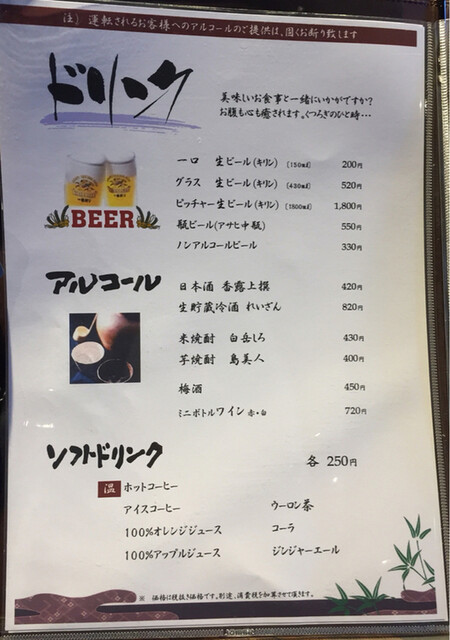 注）運転されるお客様へのアルコールのご提供は、固くお断り致します
ドリンク
美味しいお食事と一緒にいかがですか？
お腹も心も癒されます。くつろぎのひと時…
BEER
一口 生ビール（キリン）〔150ml〕 200円
グラス 生ビール（キリン）〔430ml〕 520円
ピッチャー生ビール（キリン）〔1800ml〕 1,800円
瓶ビール（アサヒ中瓶） 550円
ノンアルコールビール 330円
アルコール
日本酒 香露上撰 420円
生貯蔵冷酒 れいざん 820円
米焼酎 白岳しろ 430円
芋焼酎 島美人 400円
梅酒 450円
ミニボトルワイン 赤・白 720円
ソフトドリンク 各 250円
温 ホットコーヒー
アイスコーヒー ウーロン茶
100%オレンジジュース コーラ
100%アップルジュース ジンジャーエール
※ 価格は税抜き価格です。別途、消費税を加算させて頂きます。